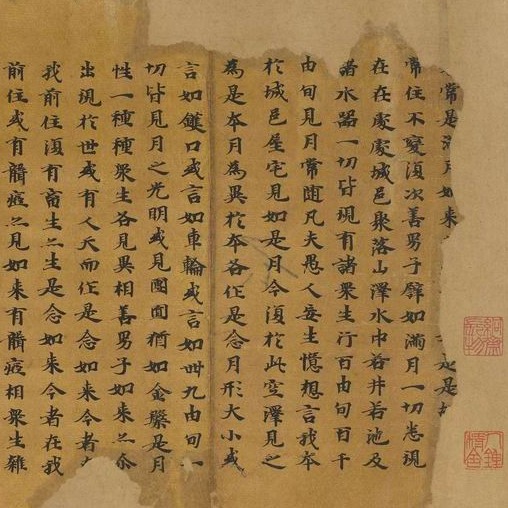 常是滿月如來
常住不變復次善男子譬如滿月一切悉現
在在處處城邑聚落山澤水中若井若池及
諸水器一切皆現有諸衆生行百由旬百千
由旬見月常隨凡夫愚人妄生憶想言我本
於城邑屋宅見如是月今復於此空澤見之
為是本月為異於本各作是念月形大小或
言如鍑口或言如車輪或言如卌九由旬一
切皆見月之光明或見團圓猶如金槃是月
性一種種衆生各見異相善男子如來亦尒
出現於世或有人天而作是念如來今者
我前住復有畜生亦生是念如來今者在我
前住或有聾瘂亦見如來有聾瘂相衆生雜